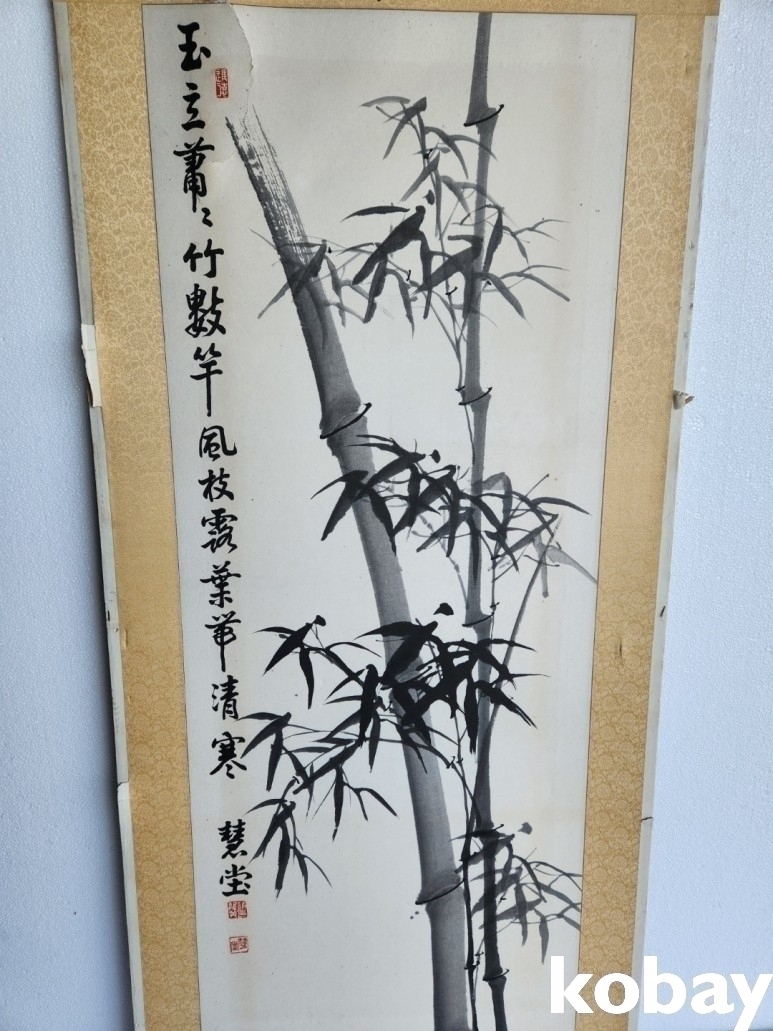 玉立蕭〻竹數竿風枝露葉帶清寒
慧堂
kobay